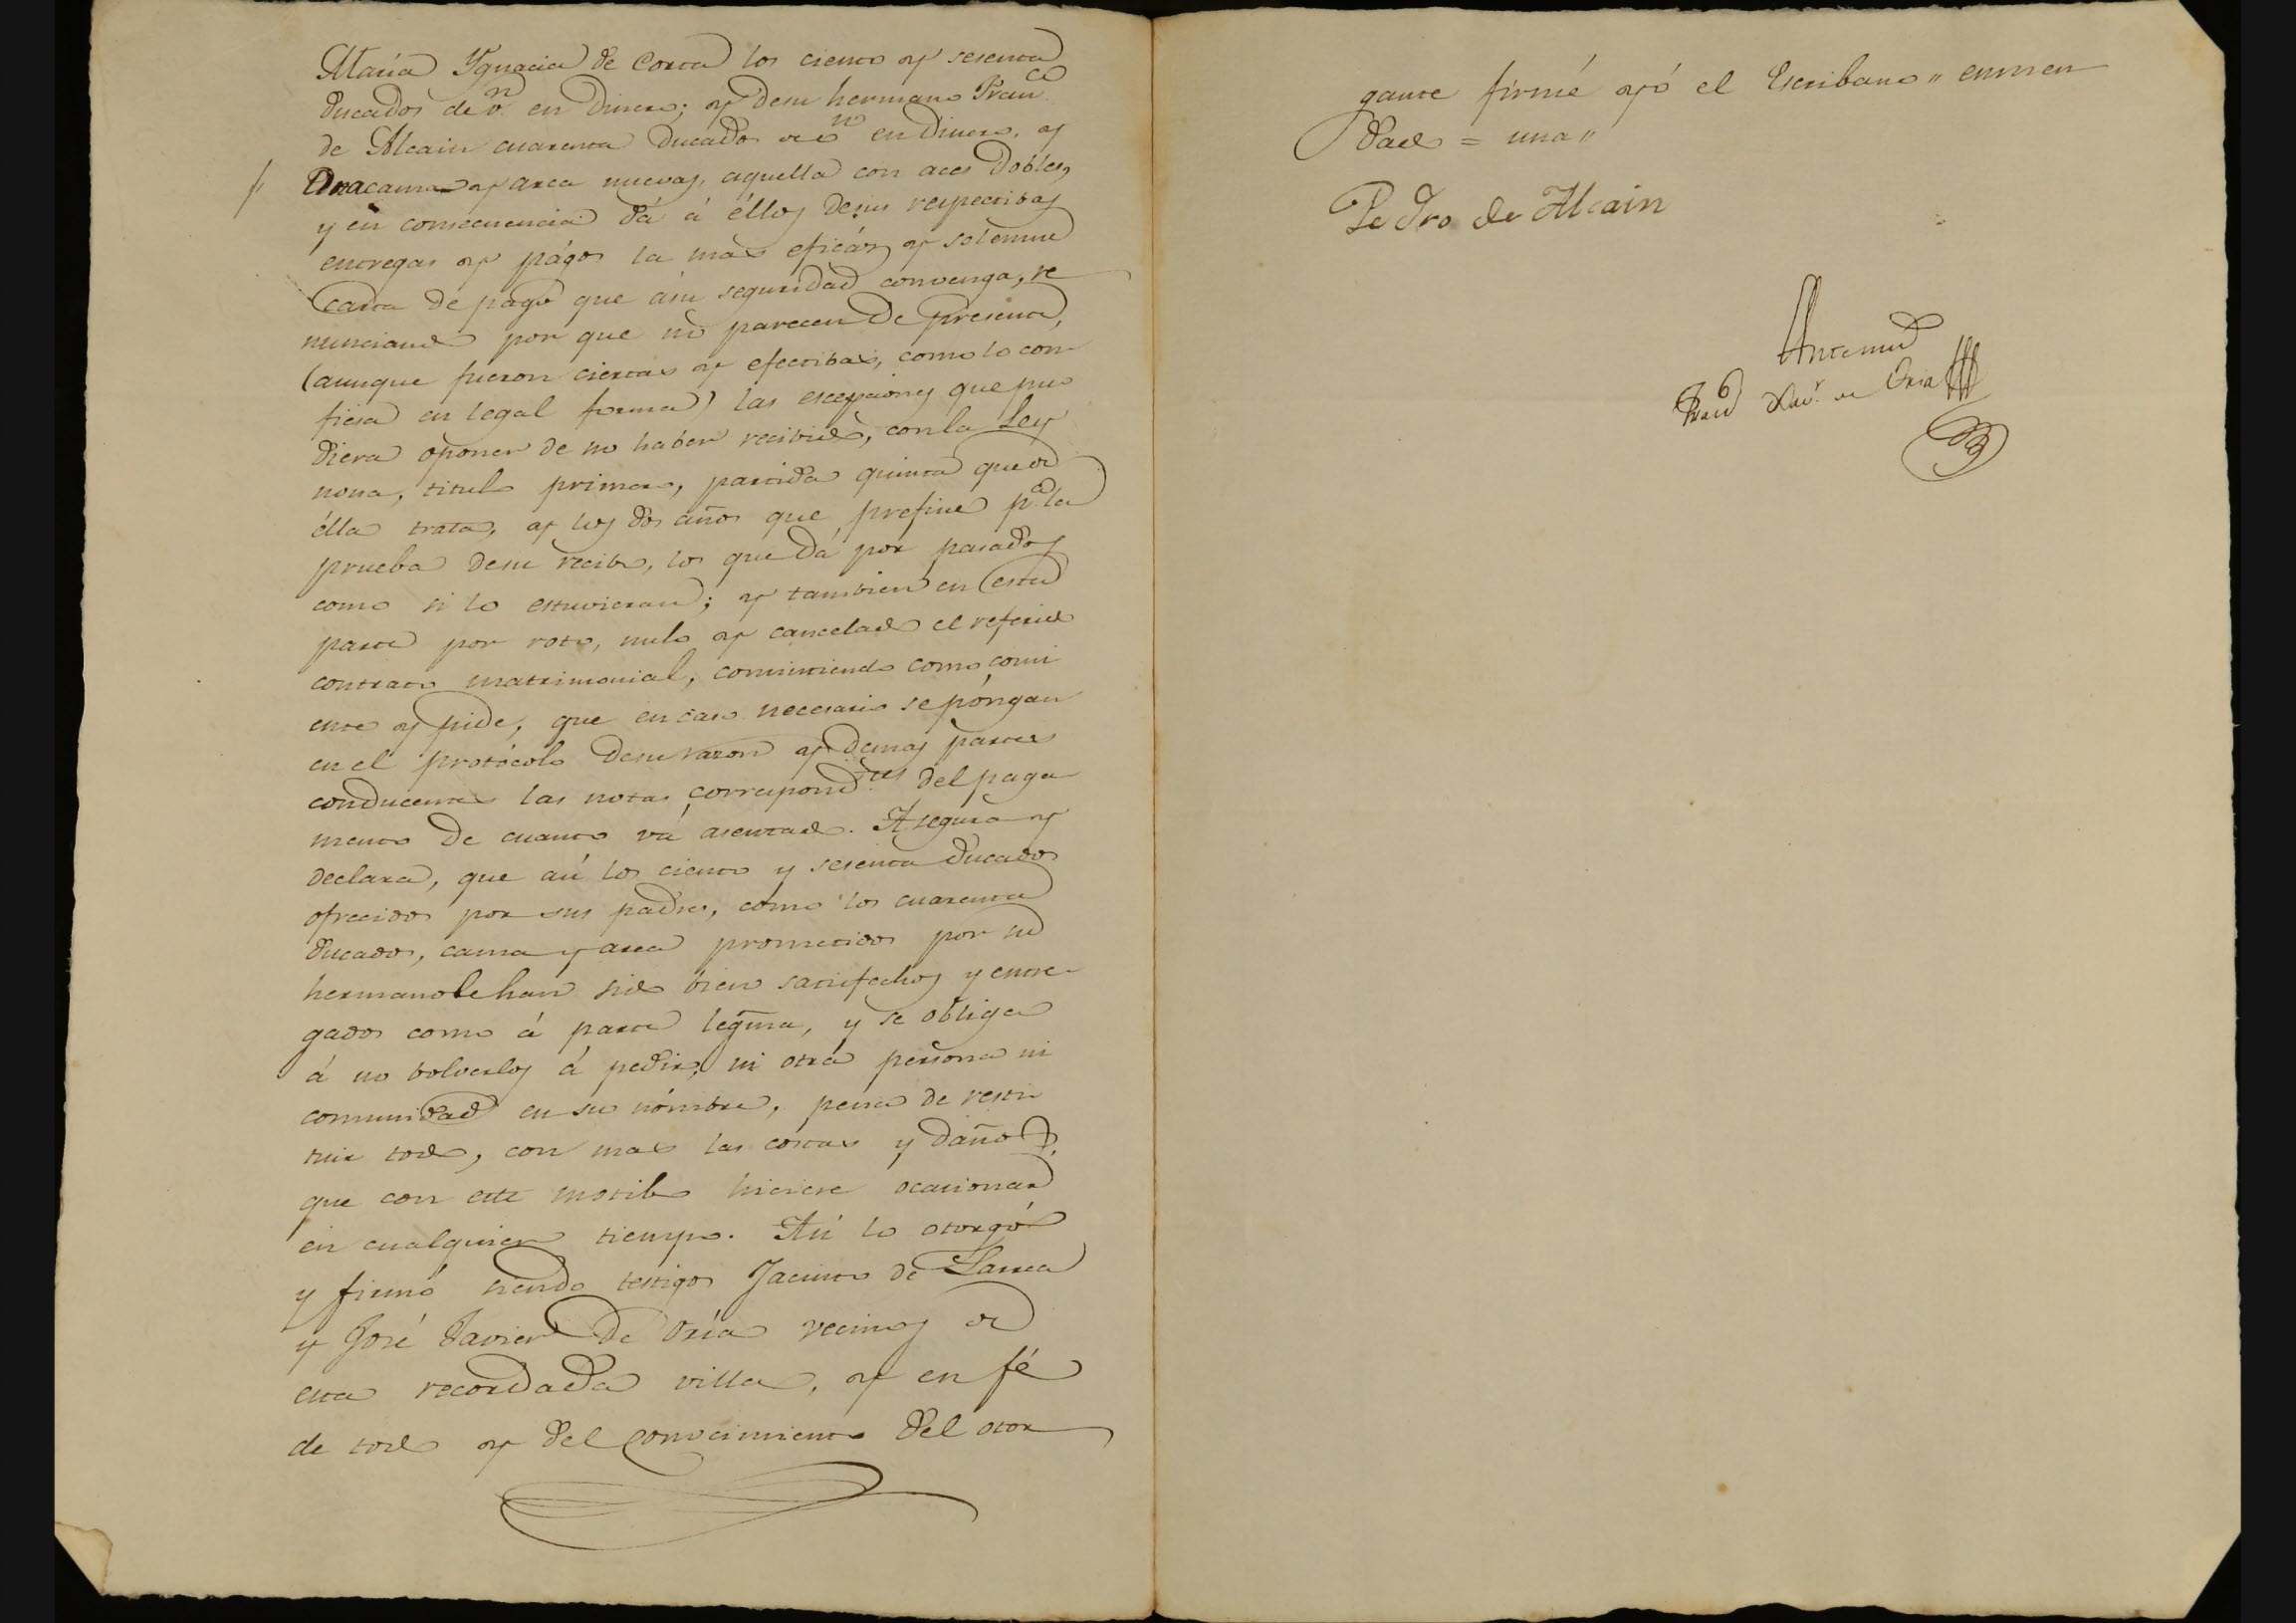 María Ygnacia de Corta los ciento y sesenta
ducados de v.n en dinero; y desu hermano Fran.co
de Alcain cuarenta ducados de v.n en dinero, y
Una cama y arca nuevas, aquella con aces dobles,
y en consecuencia dá á éllos desus respectibas
entregas y págos la mas eficáz y solemne
carta de pago que asu seguridad convenga, re
nunciando por que no parecen de presente,
(aunque fueron ciertas y efectibas, como lo con
fiesa en legal forma) las escepciones que pu
diera oponer de no haber recivido, con la Ley
nona, titulo primero, partida quinta que de
élla trata, y los dos años que prefine p.a la
prueba desu recibo, los que dá por pasados
como si lo estuvieran; y tambien en esta
parte por roto, nulo y cancelado el referido
contrato matrimonial, consintiendo como consi
ente y pide, que en caso necesario se póngan
en el protócolo desu razon y demas partes
conducentes las notas correspond.tes del paga
mento de cuanto vá asentado. Asegura y
declara, que asi los ciento y sesenta ducados
ofrecidos por sus padres, como los cuarenta
ducados, cama y arca prometidos por su
hermano le han sido bien satisfechos y entre-
gados como á parte legma, y se obliga
á no volverlos á pedir, ni otra persona ni
comunidad en su nómbre, pena de resti
tuir todo, con mas las costas y daños
que con este motibo hiciere ocasionar
en cualquier tiempo. Asi lo otorgó
y firmó siendo testigos Jacinto de Larrea
y José Javier de Oria vecinos de
esta recordada villa, y en fé
de todo y del conocimiento del otor
gante firmé yó el Escribano " enmen
dado = una "
Pedro de Alcain
Antemi
Fran.co Xav.r de Oria